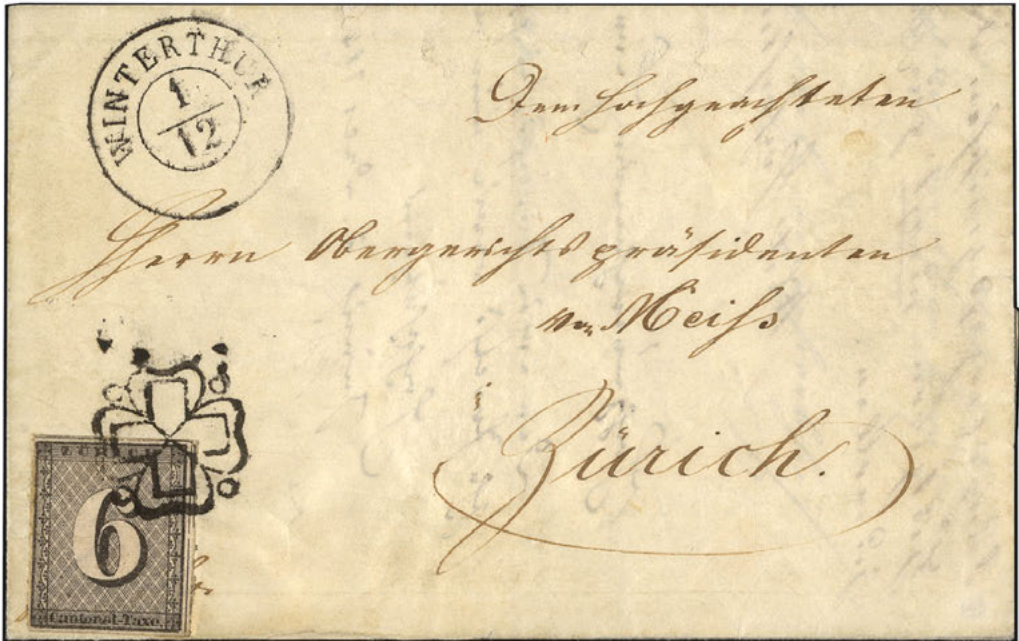 WINTERTHUR
1
12
Dem hochgeachteten
Herrn Obergerichtspräsidenten
von Meiss
Zürich.
ZÜRICH
6
Cantonal-Taxe.